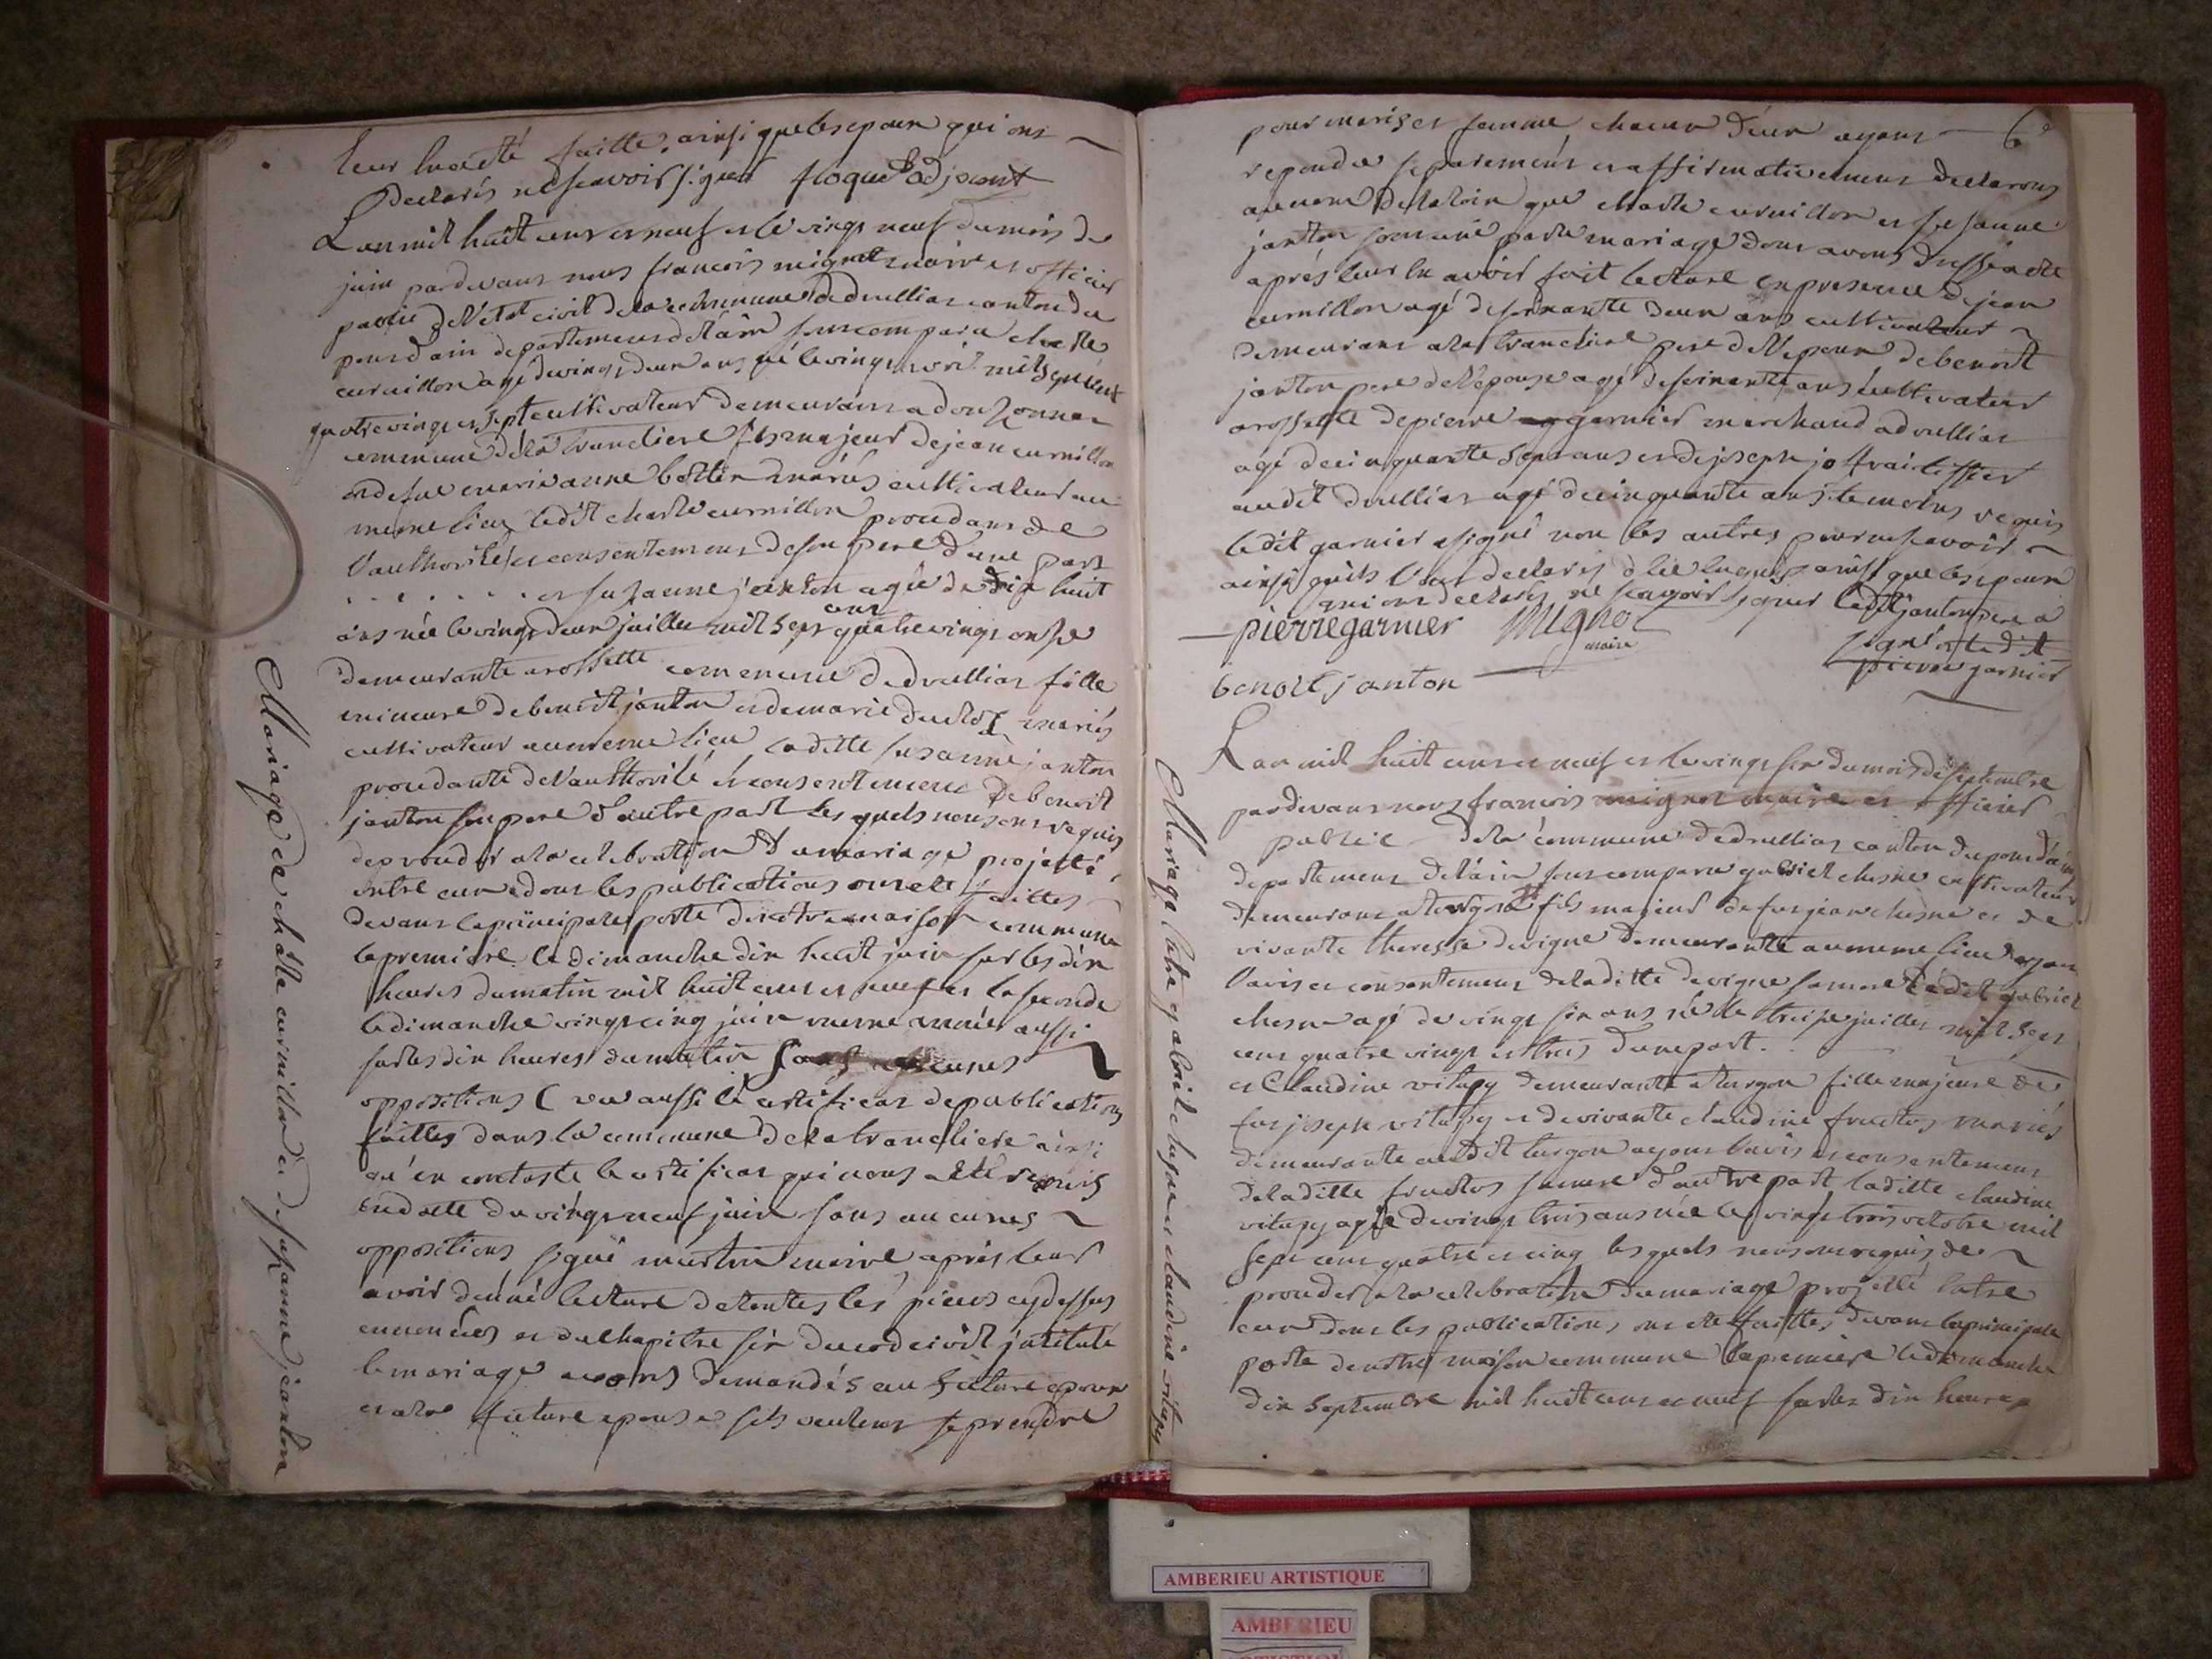 leur lu acté faitte, ainsi que les epoux qui ons
declarés ne scavoir signer floquet adjoint
L an mil huit cens et neuf et le vingt neuf du mois de
juin pardevans nous francois mignot maire et officier
public de l'etat civil de la commune de druillias canton du
pons d'ain departemens de l'ain sons comparu charle
curnillon agé de vingt deux ans né le vingt mil sept cens
quatre vingt et sept cultivateur demeurans a donsonnas
commune de la tranclière fils majeur de jean curnillon
et de fue marianne mariés cultivateur au
meme lieu ledit charle curnillon procedans de
l'authorité et consentemens de son pere d'une part
et susanne janton agée de dix huit
ans née le vingt deux juillet mil sept cens quatre vingt onse
demeurante a rossette commune de druillias fille
mineure de benoit janton et de marie mariés
cultivateur au meme lieu laditte susanne janton
procedante de l'authorité et consentemens de benoit
janton son pere d'autre part les quels nous ons requis
de proceder a la celebration du mariage projetté
entre eux et dons les publications ons eté faittes
devans la principale porte de notre maison commune
la premiere le dimanche dix huit juin sur les dix
heures du matin mil huit cens et neuf et la seconde
le dimanche vingt cinq juin meme année aussi
sur les dix heures du matin sans aucunes
oppositions vu aussi le certificat de publications
faittes dans la commune de la tranclière ainsi
qu'en contaste le certificat qui nous a eté remis
en datte du vingt neuf juin sans aucunes
oppositions signé martin maire après leur
avoir donné lecture de toutes les pieces cy dessus
enoncées et du chapitre six du code civil intitulé
le mariage avons demandés au future epoux
et a la future epouse s'ils veulent se prendre
Mariage de charle curnillon et de susanne janton
6
pour maris et femme chacun d'eux ayans
repondu separemens et affirmativemens declarons
au nom de la loix que charle curnillon et susanne
janton sons unie par le mariage dons avons dressé acte
après leur en avoir fait lecture en presence de jean
curnillon agé de soixante deux ans cultivateur
demeurans a la tranclière pere de l'epoux de benoit
janton pere de l'epouse agé de soixante ans cultivateur
a rossette de pierre garnier marchand a druillias
agé de cinquante sept ans et de joseph joffrai tissier
audit druillias agé de cinquante ans temoins requis
ledit garnier a signé non les autres pour ne scavoir
ainsi qu'ils l'ons declarés de ce enquis ainsi que les epoux
qui ons declarés ne scavoir signer ledit janton pere a
signé et ledit
pierre garnier
pierre garnier Mignot
maire
benoit janton
L an mil huit cens et neuf et le vingt six du mois de septembre
pardevans nous francois mignot maire et officier
public de la commune de druillias canton du pons d'ain
departemens de l'ain sons comparu gabriel chesne cultivateur
demeurans a turgon fils majeur de fus jean chesne et de
vivante theresse devigne demeurante au meme lieu ayans
l'avis et consentemens de laditte devigne sa mere ledit gabriel
chesne agé de vingt six ans né le treise juillet mil sept
cens quatre vingt et trois d'une part.
et Claudine vitupy demeurante a turgon fille majeure de
fus joseph vitupy et de vivante claudine fructus mariés
demeurante audit turgon ayans l'avis et consentemens
de laditte fructus sa mere d'autre part laditte claudine
vitupy agée de vingt trois ans née le vingt trois octobre mil
sept cens quatre et cinq les quels nous ons requis de
proceder a la celebration du mariage projetté entre
eux dons les publications ons eté faittes devans la principale
porte de notre maison commune la premiere le dimanche
dix septembre mil huit cens et neuf sur les dix heures
Mariage entre gabriel chesne et claudine vitupy
AMBERIEU ARTISTIQUE
AMBERIEU